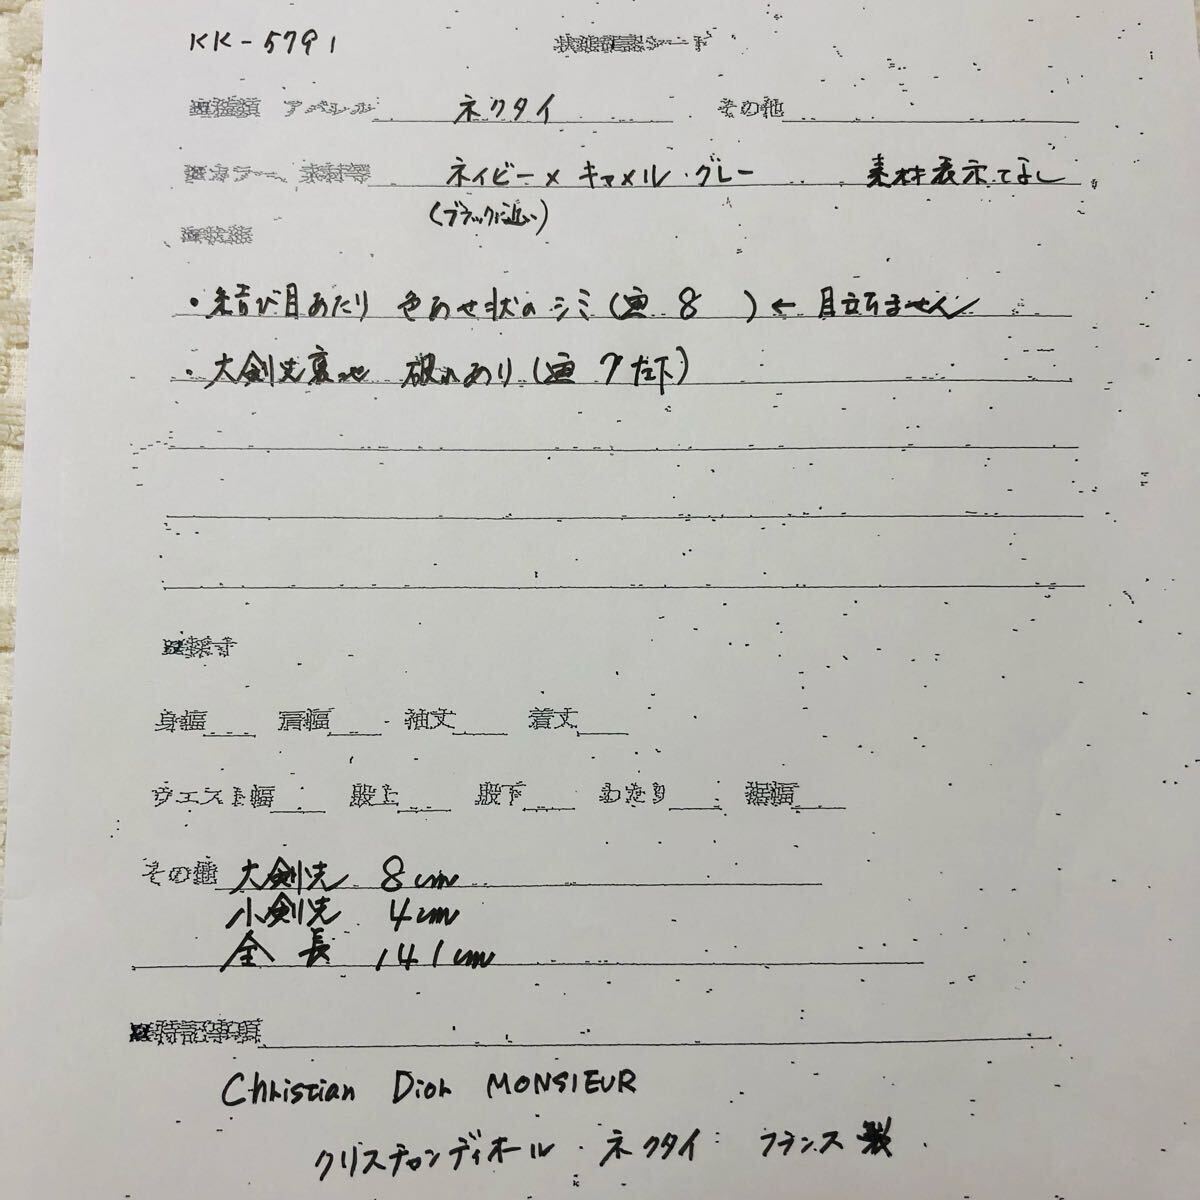 KK-5791 状態確認シート
■種類 アパレル ネクタイ その他
■カラー、素材等 ネイビー×キャメル・グレー 素材表示てなし
(ブラックに近い)
■状態
・結び目あたり 色あせ状のシミ(画 8 )← 目立ちません
・大剣先裏地 破れあり(画 7 左下)
■採寸
身幅 肩幅 袖丈 着丈
ウエスト幅 股上 股下 わたり 裾幅
その他 大剣先 8cm
小剣先 4cm
全長 141cm
■特記事項
Christian Dior MONSIEUR
クリスチャンディオール ネクタイ フランス製